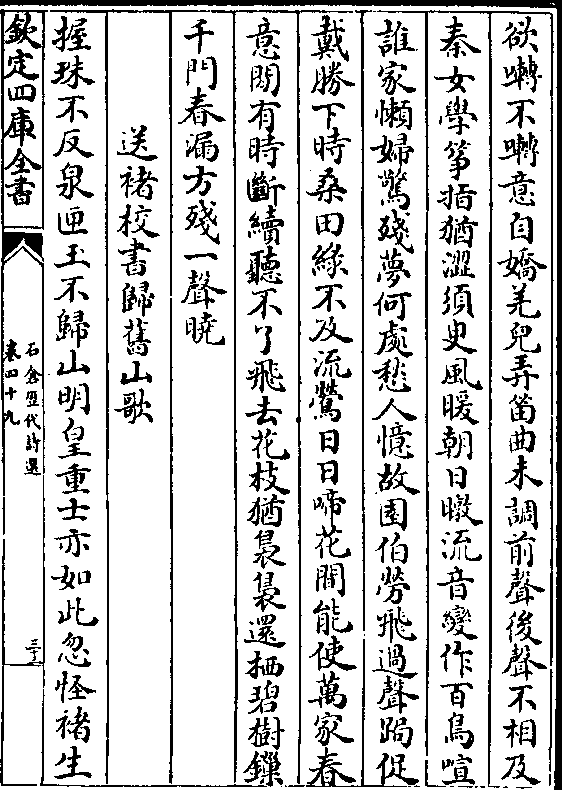 欲囀不囀意自嬌羌兒弄笛曲未調前聲後聲不相及
秦女學箏指猶澀須臾風暖朝日暾流音變作百鳥喧
誰家懶婦驚殘夢何處愁人憶故園伯勞飛過聲跼促
戴勝下時桑田綠不及流鶯日日啼花間能使萬家春
意閒有時斷續聽不了飛去花枝猶裊裊還栖碧樹鏁
千門春漏方殘一聲曉
送褚校書歸舊山歌
握珠不反泉匣玉不歸山明皇重士亦如此忽怪褚生
欽定四庫全書
石倉歷代詩選
卷四十九
三十二